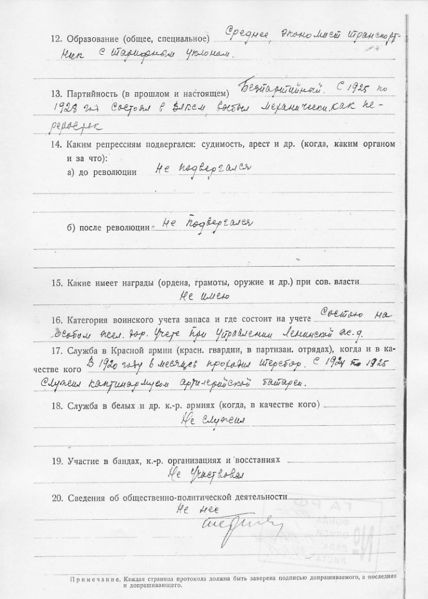 12. Образование (общее, специальное) Среднее, экономист транспорт-
ник с тарифным уклоном.
13. Партийность (в прошлом и настоящем) Безпартийный. С 1925 по
1928 год состоял в ВЛКСМ, выбыл механически, как пе-
реросток
14. Каким репрессиям подвергался: судимость, арест и др. (когда, каким органом
и за что):
а) до революции Не подвергался
б) после революции Не подвергался
15. Какие имеет награды (ордена, грамоты, оружие и др.) при сов. власти
Не имею
16. Категория воинского учета запаса и где состоит на учете Состою на
Особом жел. дор. учете при Управлении Ленинской ж.д.
17. Служба в Красной армии (красн. гвардии, в партизан. отрядах), когда и в ка-
честве кого В 1920 году 6 месяцев проходил терсбор. С 1924 по 1925
Служил каптинармусом артилерийской батареи.
18. Служба в белых и др. к.-р. армиях (когда, в качестве кого)
Не служил
19. Участие в бандах, к.-р. организациях и восстаниях
Не участвовал
20. Сведения об общественно-политической деятельности
Не нес
ГАРФ
Примечание. Каждая страница протокола должна быть заверена подписью допрашиваемого, а последняя
и допрашивающего.